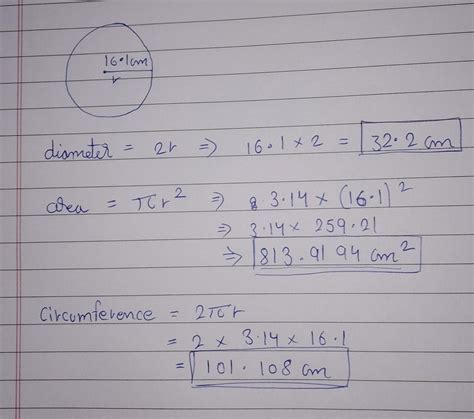 16.1cm
r
diameter = 2r ⇒ 16.1 × 2 = 32.2 cm
area = πr² ⇒ 3.14 × (16.1)²
⇒ 3.14 × 259.21
⇒ 813.9194 cm²
Circumference = 2πr
= 2 × 3.14 × 16.1
= 101.108 cm